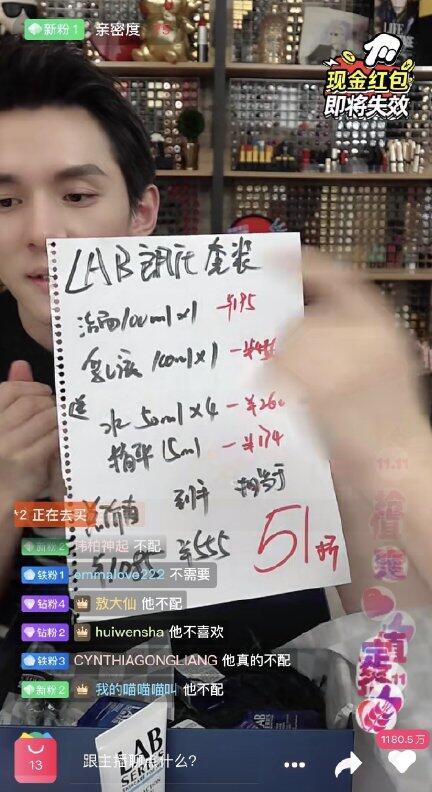 新粉 1 亲密度 75
现金红包
即将失效
LAB 朗氏套装
洁面100ml×1 -¥195
乳液 100ml×1
送
水 50ml×4
精华 15ml -¥174
到手 相当于
¥555 51折
正在去买
新粉 2 韦柏神起 不配
铁粉 1 emmalove222 不需要
钻粉 4 敖大仙 他不配
钻粉 2 huiwensha 他不喜欢
铁粉 3 CYNTHIAGONGLIANG 他真的不配
新粉 2 我的喵喵喵叫 他不配
11.11
LAB
SERIES
13
跟主播聊点什么？
1180.5万